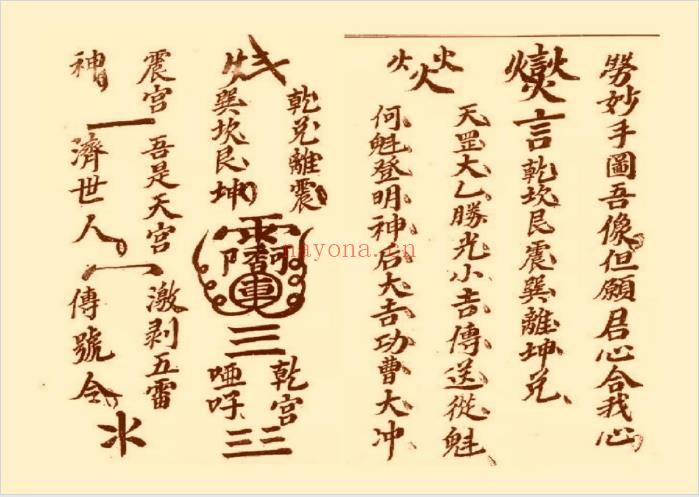 勞妙手圖吾像但願君心合我心
言乾坎艮震巽離坤兌
火火火
天罡大乙勝光小吉傳送從魁
何魁登明神后大吉功曹大冲
乾兌離震
巽坎艮坤
三
乾宮
啞吽
三三
震宮 吾是天宮 激剥五雷
神 濟世人 傳號令
nayona.cn